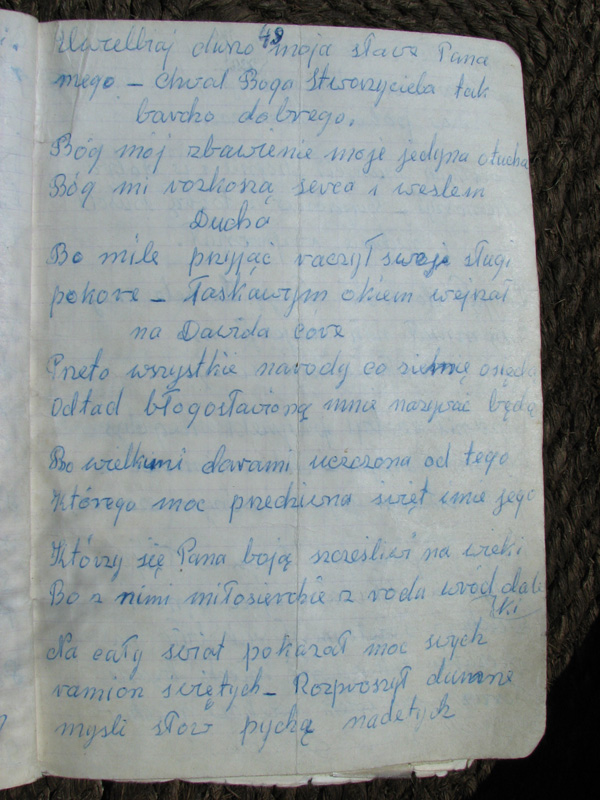 49
Uwielbiaj duszo moja sława Pana
mego – chwal Boga Stworzyciela tak
bardzo dobrego.
Bóg mój zbawienie moje jedyna otucha
Bóg mi rozkoszą serca i weslem
Ducha
Bo mile przyjąć raczył swoje sługi
pokore – Łaskawym okiem wejrzał
na Dawida córe
Przeto wszystkie narody co
Odtad błogosławioną mnie nazywać będą
Bo wielkimi darami uczczona od tego
Którego moc przedziwna święt imie jego
Którzy się Pana boją szcześliwi na wieki
Bo z nimi miłosierdzie z rodu wród dale
ki
Na cały świat pokazał moc swych
ramion świętych – Rozproszył dumne
mysli słow pychą nadetych